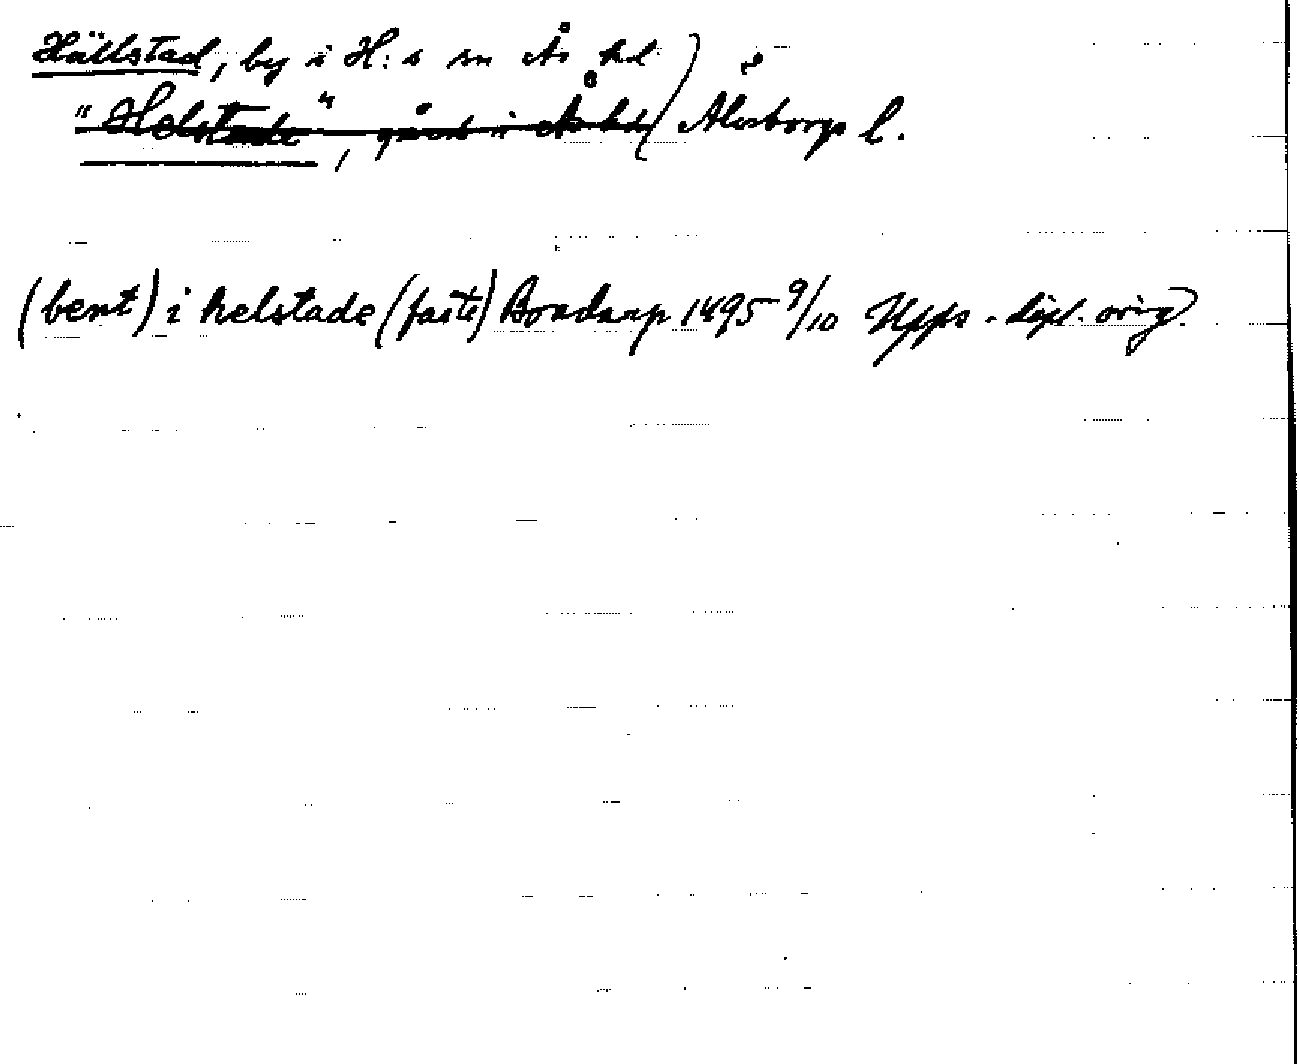 Hällstad, by i H:s sn Ås hd
"Helstade", gård i Ås hd) Älvsborgs l.
(bent) i helstade (faste) 1495 9/10 Upps. dipl. orig.